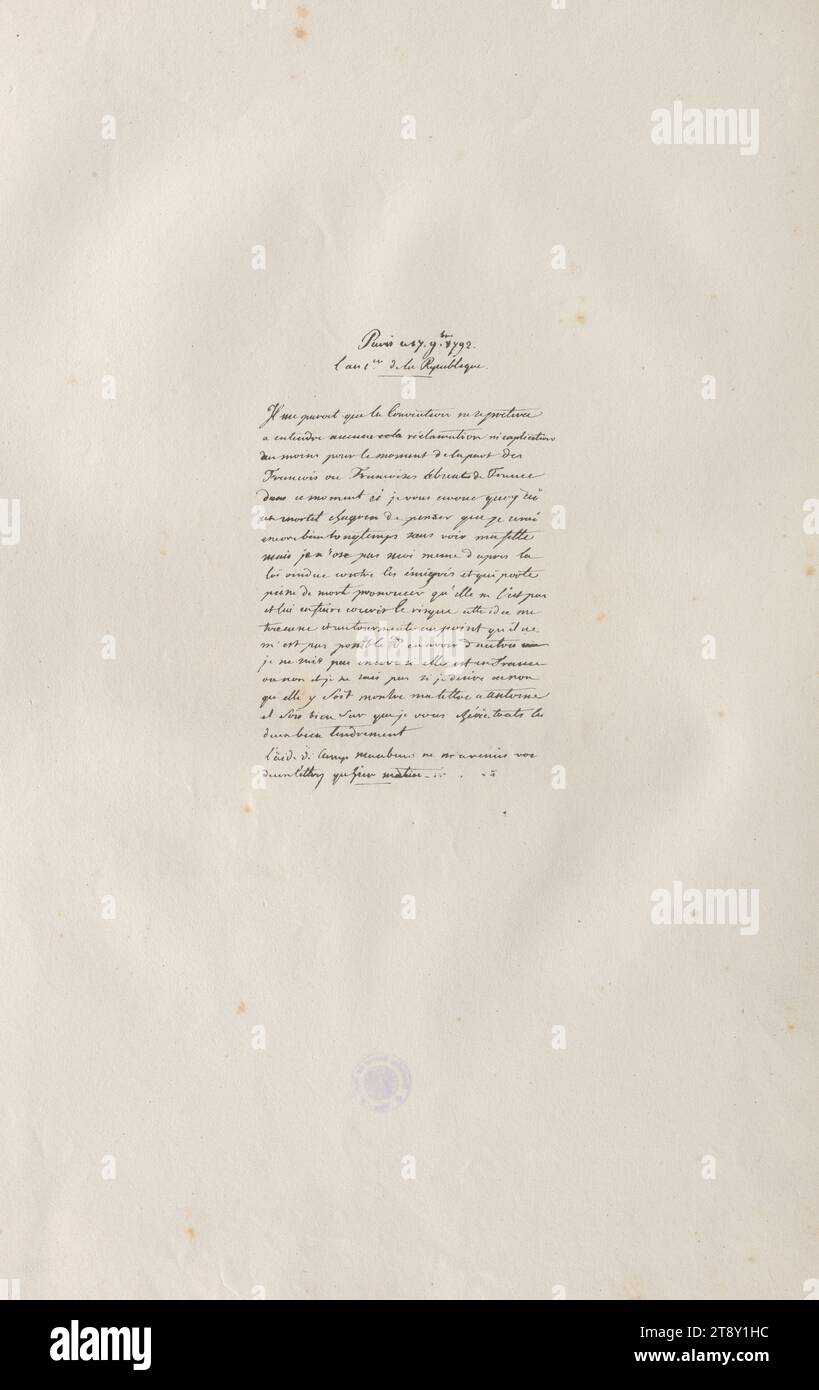 Paris ce 17. 9.bre 1792.
l'an 1.er de la Republique.
Il me paroit que la Convention ne se pretera
a entendre aucune reclamation ni explication
du moins pour le moment de la part des
Francois ou Francoises absents de France
dans ce moment ci je vous avoue que j'ai
un mortel chagrin de penser que je serai
encore bien longtemps sans voir ma fille
mais je n'ose pas moi meme d'apres la
loi rendue contre les émigrés et qui porte
peine de mort prononcer qu'elle ne l'est pas
et lui en faire courir le risque cette idee me
tourmente au point qu'il ne
m'est pas possible d'en avoir d'autres
je ne sait pas encore si elle est en France
ou non et je ne sais pas si je desire ou non
qu'elle y soit montre ma lettre a Antoine
et sois bien sur que je vous cheris touts les
deux bien tendrement
l'aide de Camp ne m'a remis vos
deux lettres qu'hier matin
alamy
alamy
alamy
a
a
a
a
a
alamy
Image ID: 2T8Y1HC
www.alamy.com